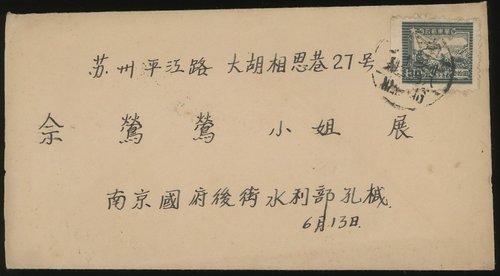 苏州平江路 大胡相思巷27号
佘鶯鶯 小姐 展
南京國府後街水利部孔棫
6月13日